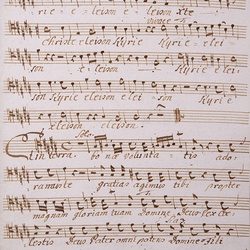 rie eleison xte
christe eleison Kyrie Kyrie elei
son eleison Kyrie elei
son Kyrie eleison elei son Kyrie
eleison.
Solo
Et in terra bonæ voluntatis ado
ramus te gratias agimus tibi propter
magnam gloriam tuam Domine Deus rex cæ
lestis Deus Pater omnipotens Domine Fili